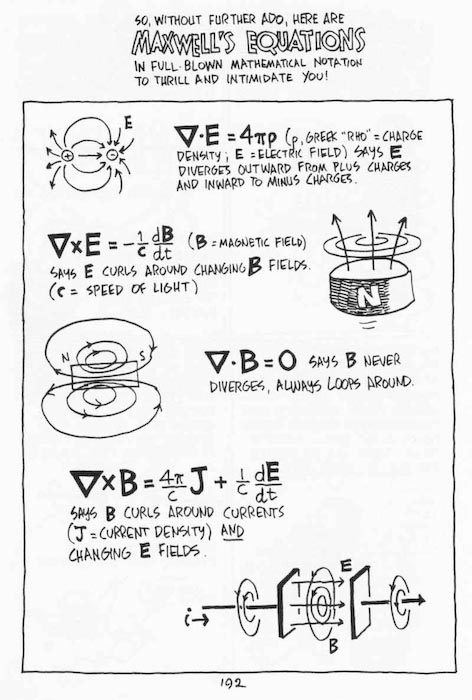 SO, WITHOUT FURTHER ADO, HERE ARE
MAXWELL'S EQUATIONS
IN FULL-BLOWN MATHEMATICAL NOTATION
TO THRILL AND INTIMIDATE YOU!
E
+ -
∇·E = 4πρ (ρ, GREEK "RHO" = CHARGE
DENSITY; E = ELECTRIC FIELD) SAYS E
DIVERGES OUTWARD FROM PLUS CHARGES
AND INWARD TO MINUS CHARGES.
∇×E = -1/c dB/dt (B = MAGNETIC FIELD)
SAYS E CURLS AROUND CHANGING B FIELDS.
(C = SPEED OF LIGHT)
N
N S
∇·B = 0 SAYS B NEVER
DIVERGES, ALWAYS LOOPS AROUND.
∇×B = 4π/c J + 1/c dE/dt
SAYS B CURLS AROUND CURRENTS
(J = CURRENT DENSITY) AND
CHANGING E FIELDS.
E
i→
B
192